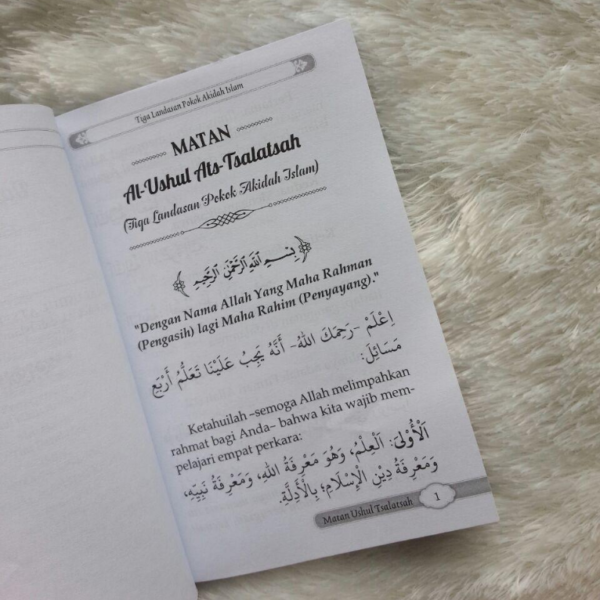 Tiga Landasan Pokok Akidah Islam
MATAN
Al-Ushul Ats-Tsalatsah
(Tiga Landasan Pokok Akidah Islam)
بِسْمِ اللَّهِ الرَّحْمَنِ الرَّحِيمِ
"Dengan Nama Allah Yang Maha Rahman
(Pengasih) lagi Maha Rahim (Penyayang)."
اِعْلَمْ –رَحِمَكَ اللهُ– أَنَّهُ يَجِبُ عَلَيْنَا تَعَلُّمُ أَرْبَعِ
مَسَائِلَ:
Ketahuilah –semoga Allah melimpahkan
rahmat bagi Anda– bahwa kita wajib mem-
pelajari empat perkara:
اَلْأُوْلَىٰ: اَلْعِلْمُ، وَهُوَ مَعْرِفَةُ اللهِ، وَمَعْرِفَةُ نَبِيِّهِ،
وَمَعْرِفَةُ دِيْنِ الْإِسْلَامِ؛ بِالْأَدِلَّةِ.
Matan Ushul Tsalatsah 1